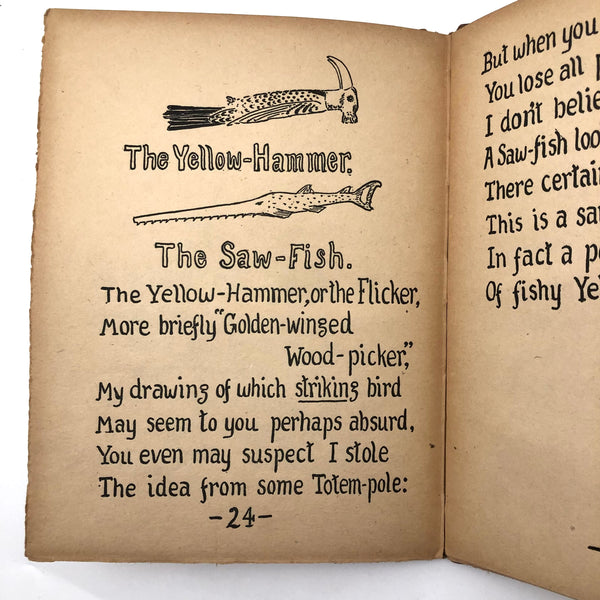 The Yellow-Hammer.
The Saw-Fish.
The Yellow-Hammer, or the Flicker,
More briefly "Golden-winged
Wood-picker,"
My drawing of which striking bird
May seem to you perhaps absurd,
You even may suspect I stole
The idea from some Totem-pole:
-24-
But when you
You lose all
I don't belie
A Saw-fish loo
There certai
This is a sa
In fact a p
Of fishy Ye